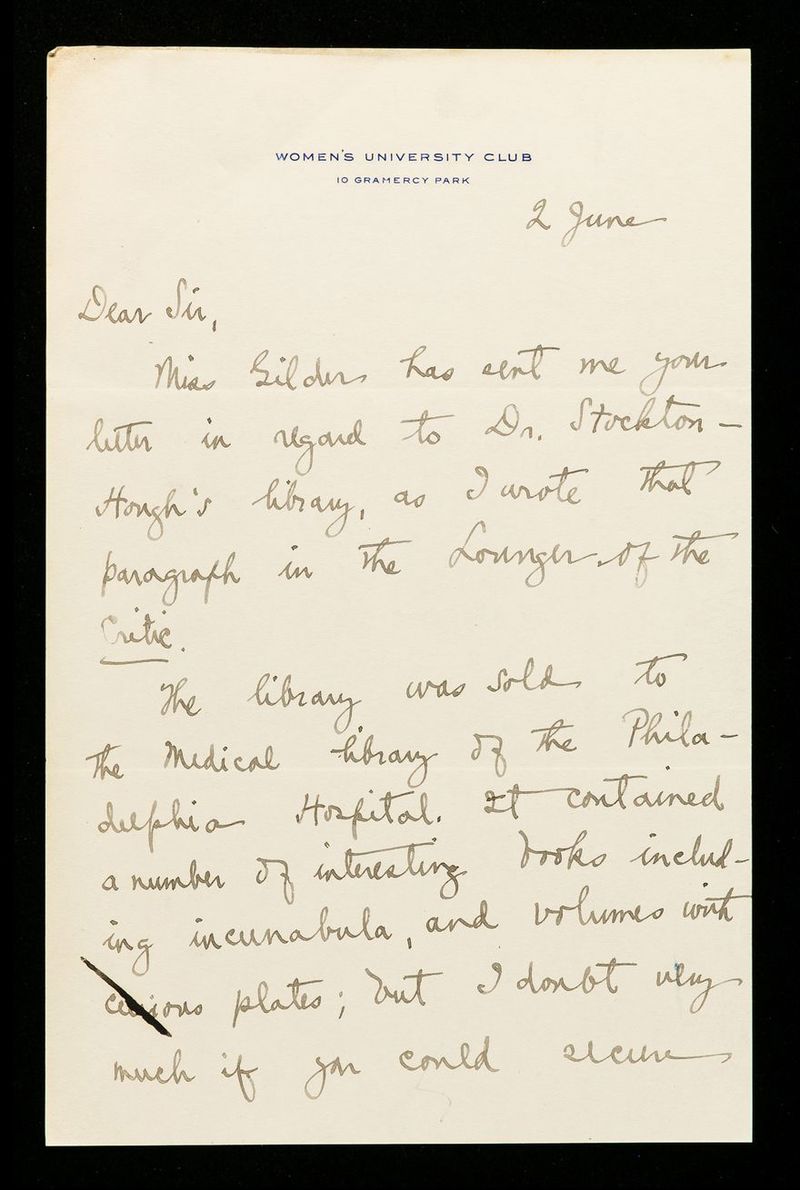 WOMEN'S UNIVERSITY CLUB
10 GRAMERCY PARK
2 June
Dear Sir,
Miss Gilder has sent me your
letter in regard to Dr. Stockton-
Hough's library, as I wrote that
paragraph in the Lounger of the
Critic.
The library was sold to
the Medical library of the Phila-
delphia Hospital. It contained
a number of interesting books includ-
ing incunabula, and volumes with
curious plates; but I doubt very
much if you could secure